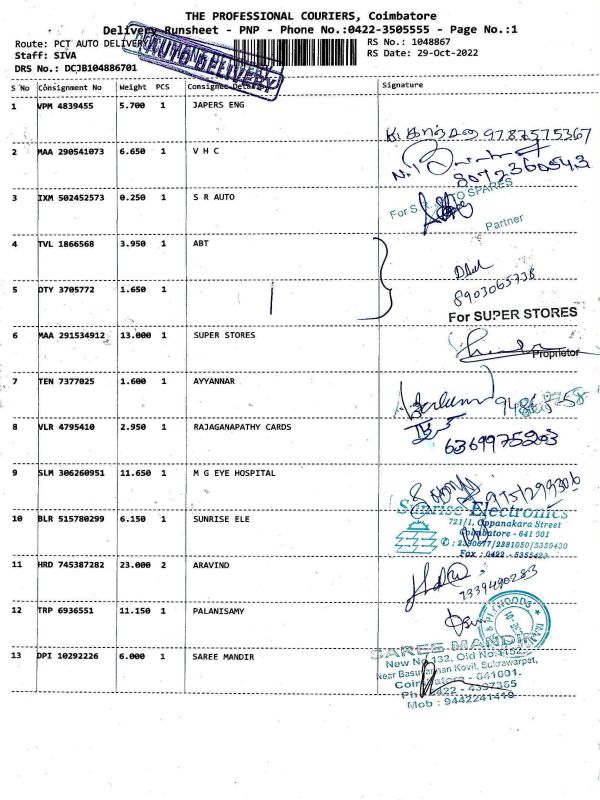 THE PROFESSIONAL COURIERS, Coimbatore
Delivery Runsheet - PNP - Phone No.:0422-3505555 - Page No.:1
Route: PCT AUTO DELIVERY
AUTO DELIVERY
RS No.: 1048867
Staff: SIVA
RS Date: 29-Oct-2022
DRS No.: DCJB104886701
S No Consignment No Weight PCS Consignee Details Signature
1 VPM 4839455 5.700 1 JAPERS ENG
9787575367
2 MAA 290541073 6.650 1 V H C
8072360543
3 IXM 502452573 0.250 1 S R AUTO
For S.R. AUTO SPARES
Partner
4 TVL 1866568 3.950 1 ABT
8903065738
5 DTY 3705772 1.650 1
For SUPER STORES
6 MAA 291534912 13.000 1 SUPER STORES
Proprietor
7 TEN 7377025 1.600 1 AYYANNAR
8 VLR 4795410 2.950 1 RAJAGANAPATHY CARDS
6369975203
9 SLM 306260951 11.650 1 M G EYE HOSPITAL
Sunrise Electronics
10 BLR 515780299 6.150 1 SUNRISE ELE
721/1, Oppanakara Street
Coimbatore - 641 001
Fax : 0422 - 5355425
11 HRD 745387282 23.000 2 ARAVIND
7339490283
12 TRP 6936551 11.150 1 PALANISAMY
SAREE MANDIR
13 DPI 10292226 6.000 1 SAREE MANDIR
New No.132, Old No.
Kovil, Sukrawarpet,
Coimbatore - 641001.
Ph : 0422 - 4397365
Mob : 9442241419